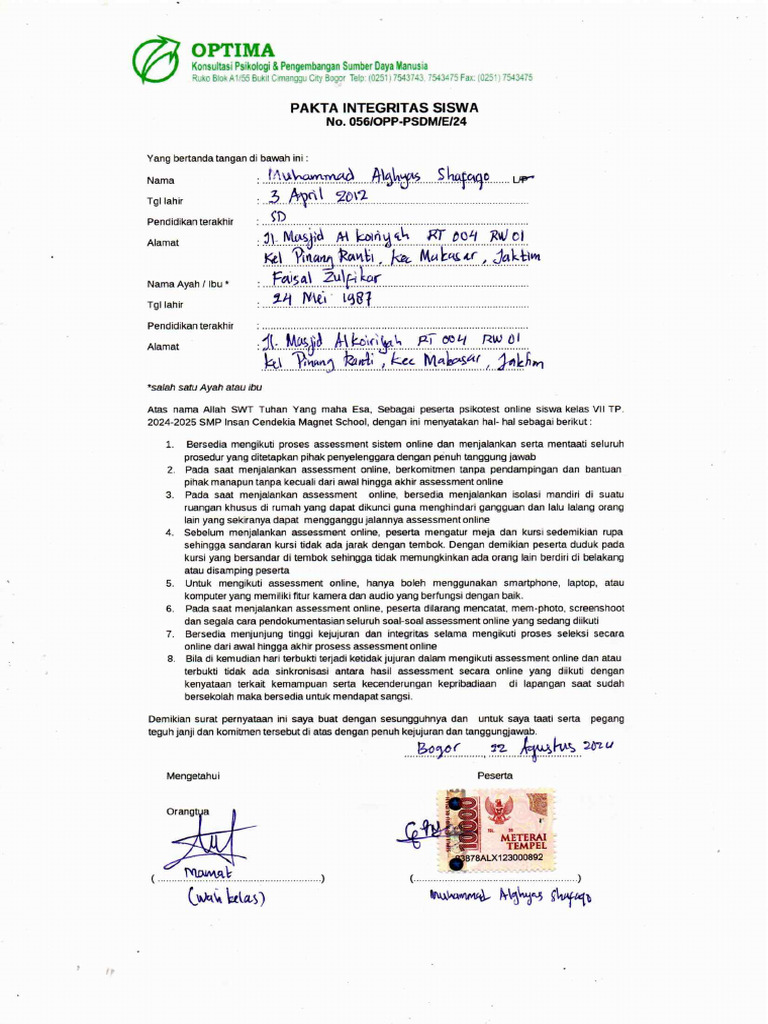 OPTIMA
Konsultasi Psikologi & Pengembangan Sumber Daya Manusia
Ruko Blok A1/55 Bukit Cimanggu City Bogor Telp: (0251) 7543743, 7543475 Fax: (0251) 7543475
PAKTA INTEGRITAS SISWA
No. 056/OPP-PSDM/E/24
Yang bertanda tangan di bawah ini :
Nama : Muhammad Alghyas Shafaqo L/P
Tgl lahir : 3 April 2012
Pendidikan terakhir : SD
Alamat : Jl. Masjid Al koiriyah RT 004 RW 01
Kel Pinang Ranti, Kec Makasar, Jaktim
Nama Ayah / Ibu * : Faisal Zulfikar
Tgl lahir : 24 Mei 1987
Pendidikan terakhir :
Alamat : Jl. Masjid Alkoiriyah RT 004 RW 01
Kel Pinang Ranti, Kec Makasar, Jaktim
*salah satu Ayah atau ibu
Atas nama Allah SWT Tuhan Yang maha Esa, Sebagai peserta psikotest online siswa kelas VII TP.
2024-2025 SMP Insan Cendekia Magnet School, dengan ini menyatakan hal- hal sebagai berikut :
1. Bersedia mengikuti proses assessment sistem online dan menjalankan serta mentaati seluruh
prosedur yang ditetapkan pihak penyelenggara dengan penuh tanggung jawab
2. Pada saat menjalankan assessment online, berkomitmen tanpa pendampingan dan bantuan
pihak manapun tanpa kecuali dari awal hingga akhir assessment online
3. Pada saat menjalankan assessment online, bersedia menjalankan isolasi mandiri di suatu
ruangan khusus di rumah yang dapat dikunci guna menghindari gangguan dan lalu lalang orang
lain yang sekiranya dapat mengganggu jalannya assessment online
4. Sebelum menjalankan assessment online, peserta mengatur meja dan kursi sedemikian rupa
sehingga sandaran kursi tidak ada jarak dengan tembok. Dengan demikian peserta duduk pada
kursi yang bersandar di tembok sehingga tidak memungkinkan ada orang lain berdiri di belakang
atau disamping peserta
5. Untuk mengikuti assessment online, hanya boleh menggunakan smartphone, laptop, atau
komputer yang memiliki fitur kamera dan audio yang berfungsi dengan baik.
6. Pada saat menjalankan assessment online, peserta dilarang mencatat, mem-photo, screenshoot
dan segala cara pendokumentasian seluruh soal-soal assessment online yang sedang diikuti
7. Bersedia menjunjung tinggi kejujuran dan integritas selama mengikuti proses seleksi secara
online dari awal hingga akhir prosess assessment online
8. Bila di kemudian hari terbukti terjadi ketidak jujuran dalam mengikuti assessment online dan atau
terbukti tidak ada sinkronisasi antara hasil assessment secara online yang diikuti dengan
kenyataan terkait kemampuan serta kecenderungan kepribadiaan di lapangan saat sudah
bersekolah maka bersedia untuk mendapat sangsi.
Demikian surat pernyataan ini saya buat dengan sesungguhnya dan untuk saya taati serta pegang
teguh janji dan komitmen tersebut di atas dengan penuh kejujuran dan tanggungjawab.
Bogor, 22 Agustus 2024
Mengetahui Peserta
Orangtua
10000
METERAI
TEMPEL
93878ALX123000892
Mamat
(wali kelas)
Muhammad Alghyas Shafaqo